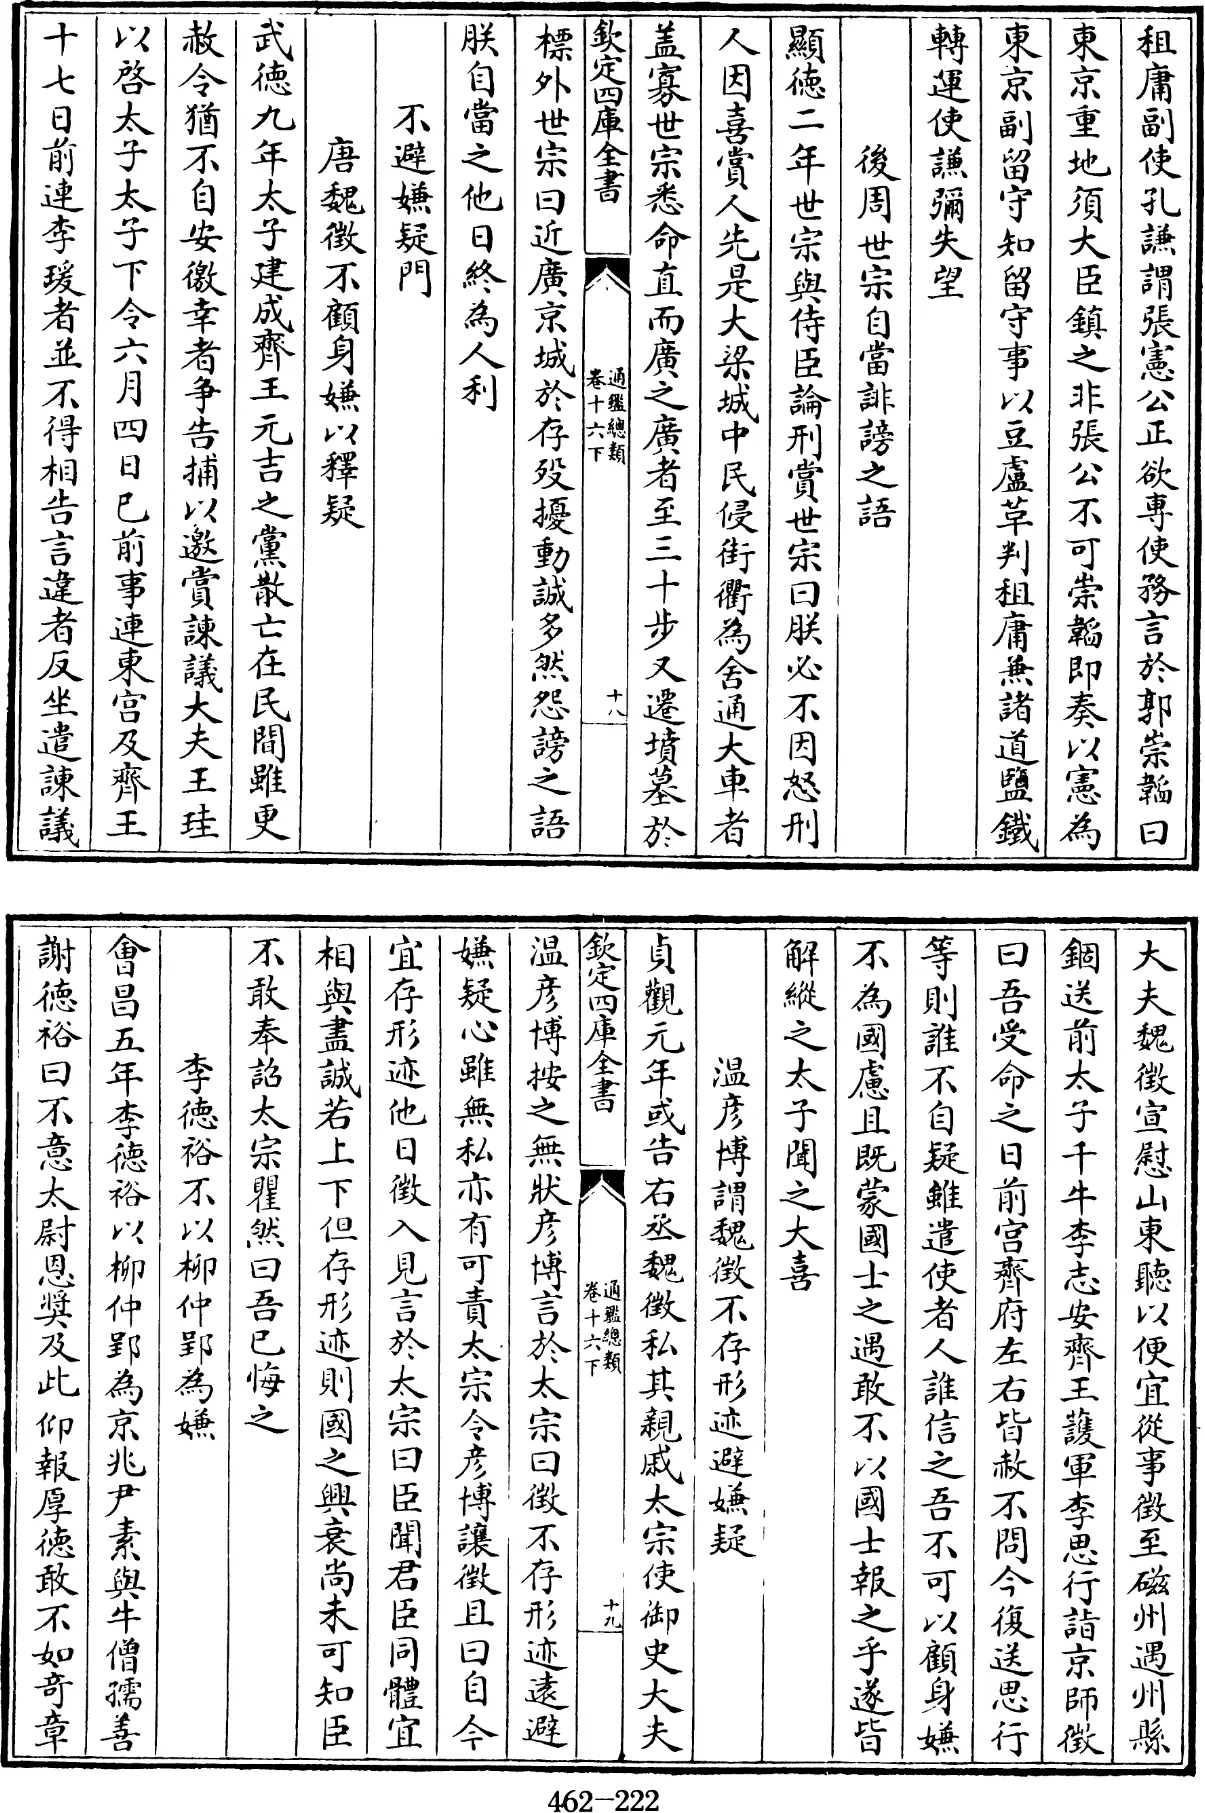 租庸副使孔謙謂張憲公正欲專使務言於郭崇韜曰
東京重地須大臣鎮之非張公不可崇韜即奏以憲為
東京副留守知留守事以豆盧革判租庸兼諸道鹽鐵
轉運使謙彌失望
後周世宗自當誹謗之語
顯德二年世宗與侍臣論刑賞世宗曰朕必不因怒刑
人因喜賞人先是大梁城中民侵街衢為舍通大車者
蓋寡世宗悉命直而廣之廣者至三十步又遷墳墓於
欽定四庫全書
通鑑總類
卷十六下
十八
標外世宗曰近廣京城於存歿擾動誠多然怨謗之語
朕自當之他日終為人利
不避嫌疑門
唐魏徵不顧身嫌以釋疑
武德九年太子建成齊王元吉之黨散亡在民間雖更
赦令猶不自安徼幸者爭告捕以邀賞諫議大夫王珪
以啓太子太子下令六月四日已前事連東宮及齊王
十七日前連李瑗者並不得相告言違者反坐遣諫議
大夫魏徵宣慰山東聽以便宜從事徵至磁州遇州縣
錮送前太子千牛李志安齊王護軍李思行詣京師徵
曰吾受命之日前宮齊府左右皆赦不問今復送思行
等則誰不自疑雖遣使者人誰信之吾不可以顧身嫌
不為國慮且既蒙國士之遇敢不以國士報之乎遂皆
解縱之太子聞之大喜
溫彥博謂魏徵不存形迹避嫌疑
貞觀元年或告右丞魏徵私其親戚太宗使御史大夫
欽定四庫全書
通鑑總類
卷十六下
十九
溫彥博按之無狀彥博言於太宗曰徵不存形迹遠避
嫌疑心雖無私亦有可責太宗令彥博讓徵且曰自今
宜存形迹他日徵入見言於太宗曰臣聞君臣同體宜
相與盡誠若上下但存形迹則國之興衰尚未可知臣
不敢奉詔太宗瞿然曰吾已悔之
李德裕不以柳仲郢為嫌
會昌五年李德裕以柳仲郢為京兆尹素與牛僧孺善
謝德裕曰不意太尉恩奬及此仰報厚德敢不如奇章
462-222